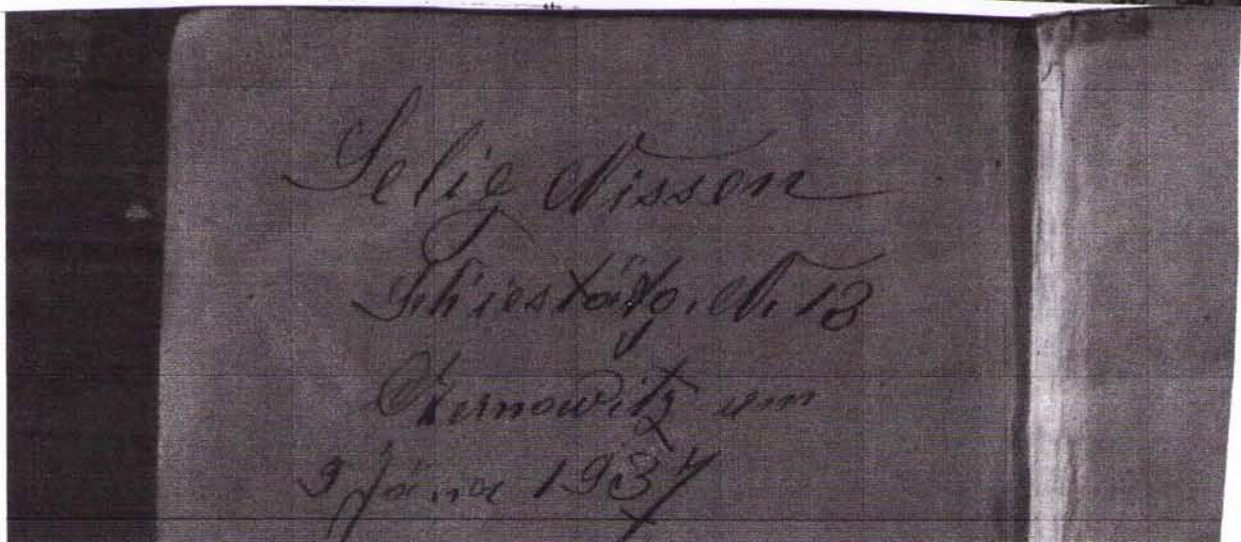 Selig Nissen
Schiestätg. N. 13
Czernowitz am
9 Jäner 1937